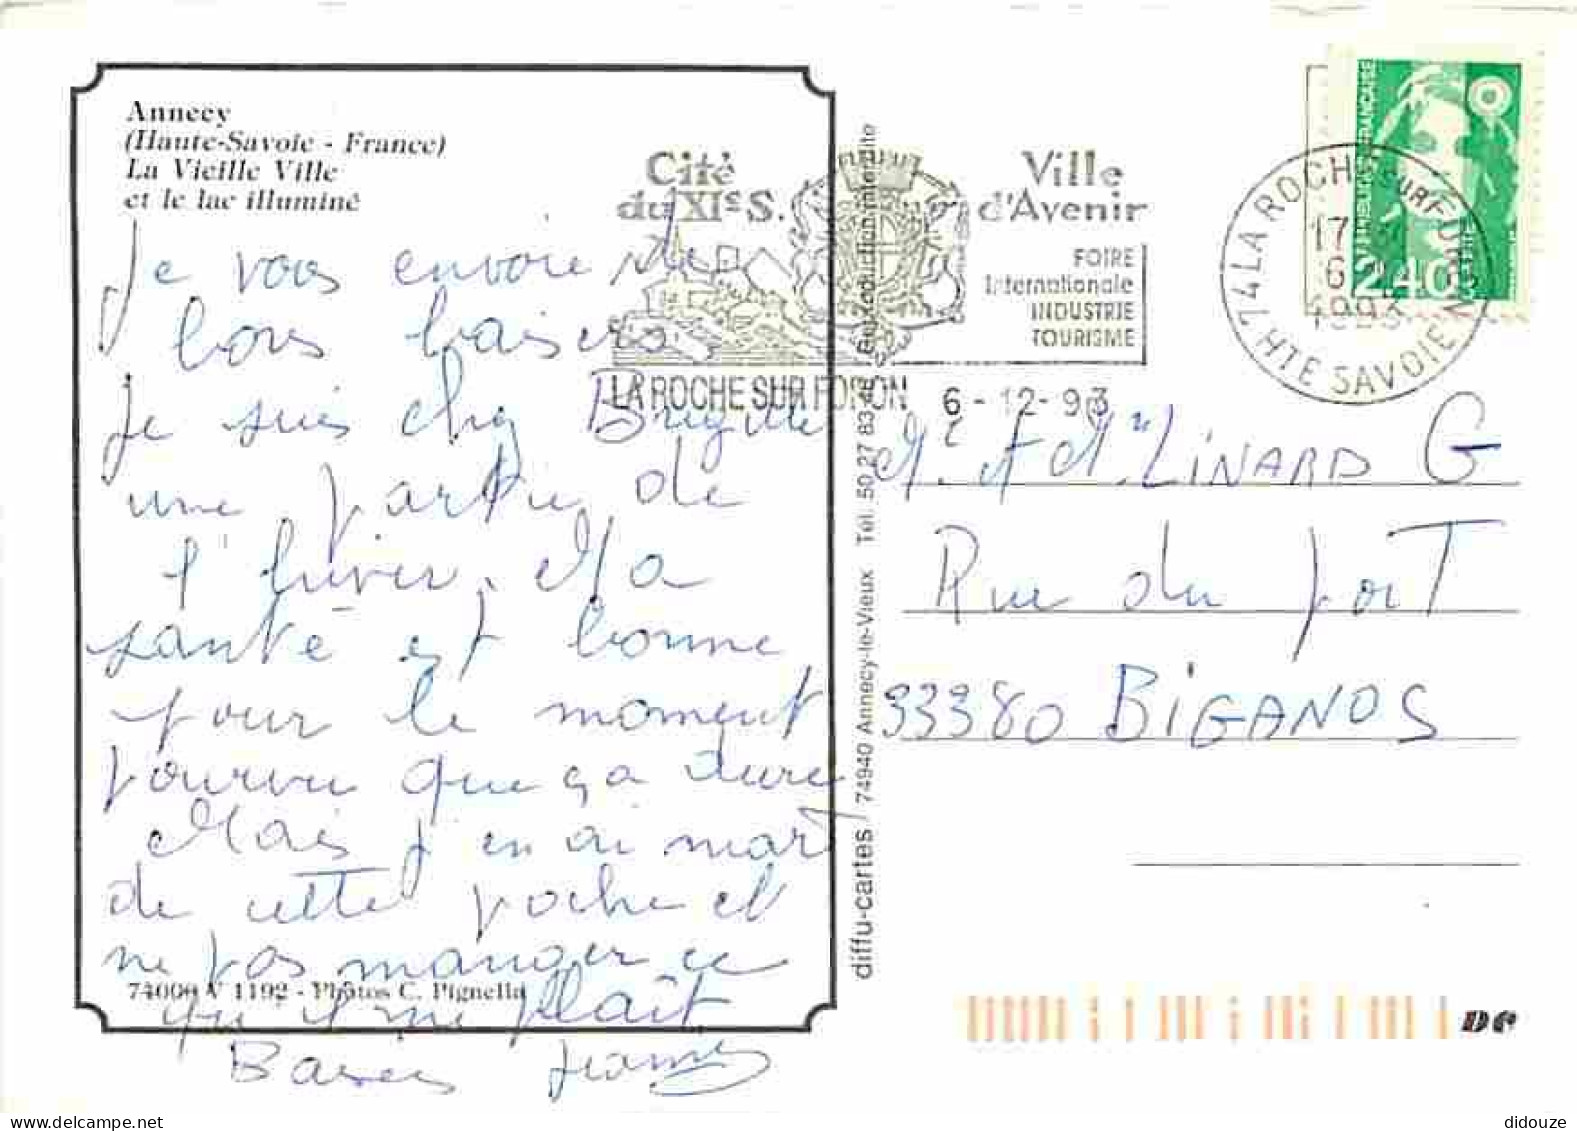 Annecy
(Haute-Savoie - France)
La Vieille Ville
et le lac illuminé
Je vous envoie de
bons baisers
Je suis chez Brigitte
une partie de
l'hiver. Ma
santé est bonne
pour le moment
pourvu que ça dure
Mais j'en ai mart
de cette poche et
ne pas manger ce
74000 V 1192 - Photos C. Pignella
qui me plait
Baisers
diffu-cartes / 74940 Annecy-le-Vieux Tél. 50 27 83 46 / Reproduction interdite
Cité
du XIe S.
Ville
d'Avenir
FOIRE
Internationale
INDUSTRIE
TOURISME
LA ROCHE SUR FORON
6-12-93
74 LA ROCHE SUR FORON
17
6
1993
HTE SAVOIE
RÉPUBLIQUE FRANÇAISE
2,40
LINARD G
Rue du porT
33380 BIGANOS
DC
didouze